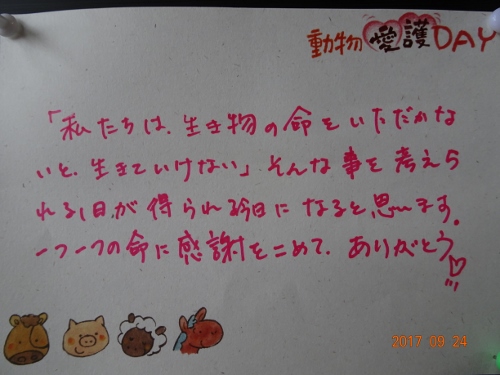 動物愛護DAY
「私たちは、生き物の命をいただかな
いと、生きていけない」そんな事を考えら
れる1日が得られる今日になると思います。
一つ一つの命に感謝をこめて、ありがとう♡
2017 09 24